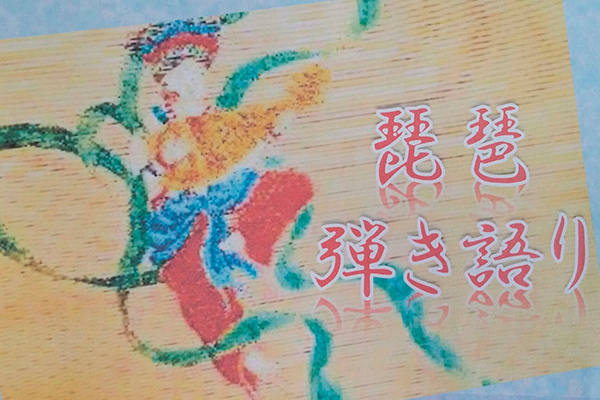 琵琶
弾き語り